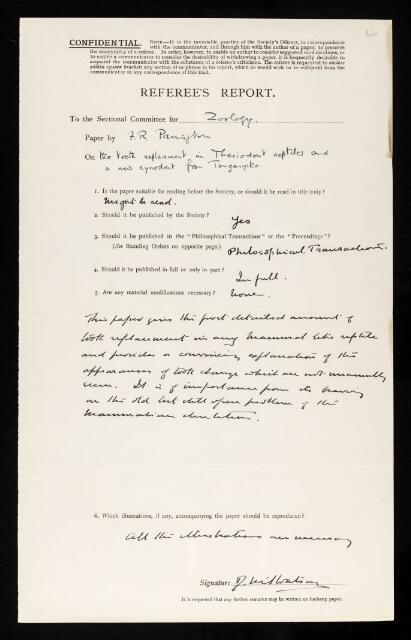 CONFIDENTIAL. NOTE.—It is the invariable practice of the Society's Officers, in correspondence
with the communicator, and through him with the author of a paper, to preserve
the anonymity of a referee. In order, however, to enable an author to consider suggested modifications, or
to enable a communicator to consider the desirability of withdrawing a paper, it is frequently desirable to
acquaint the communicator with the substance of a referee's criticisms. The referee is requested to enclose
within square brackets any section of or phrase in his report, which he would wish to be withheld from the
communicator in any correspondence of this kind.
REFEREE'S REPORT.
To the Sectional Committee for Zoology.
Paper by F.R. Parrington
On the tooth replacement in Theriodont reptiles and
a new cynodont from Tanganyika
1. Is the paper suitable for reading before the Society, or should it be read in title only?
Might be read.
2. Should it be published by the Society?
Yes
3. Should it be published in the "Philosophical Transactions" or the "Proceedings"?
(See Standing Orders on opposite page.) Philosophical Transactions.
4. Should it be published in full or only in part?
In full.
5. Are any material modifications necessary?
None.
This paper gives the first detailed account of
tooth replacement in any Mammal like reptile
and provides a convincing explanation of the
appearances of tooth change which are not unusually
seen. It is of importance from its bearing
on the old but still open problem of the
Mammalian dentition.
6. Which illustrations, if any, accompanying the paper should be reproduced?
All the illustrations are necessary
Signature D.M.S. Watson
It is requested that any further remarks may be written on foolscap paper.